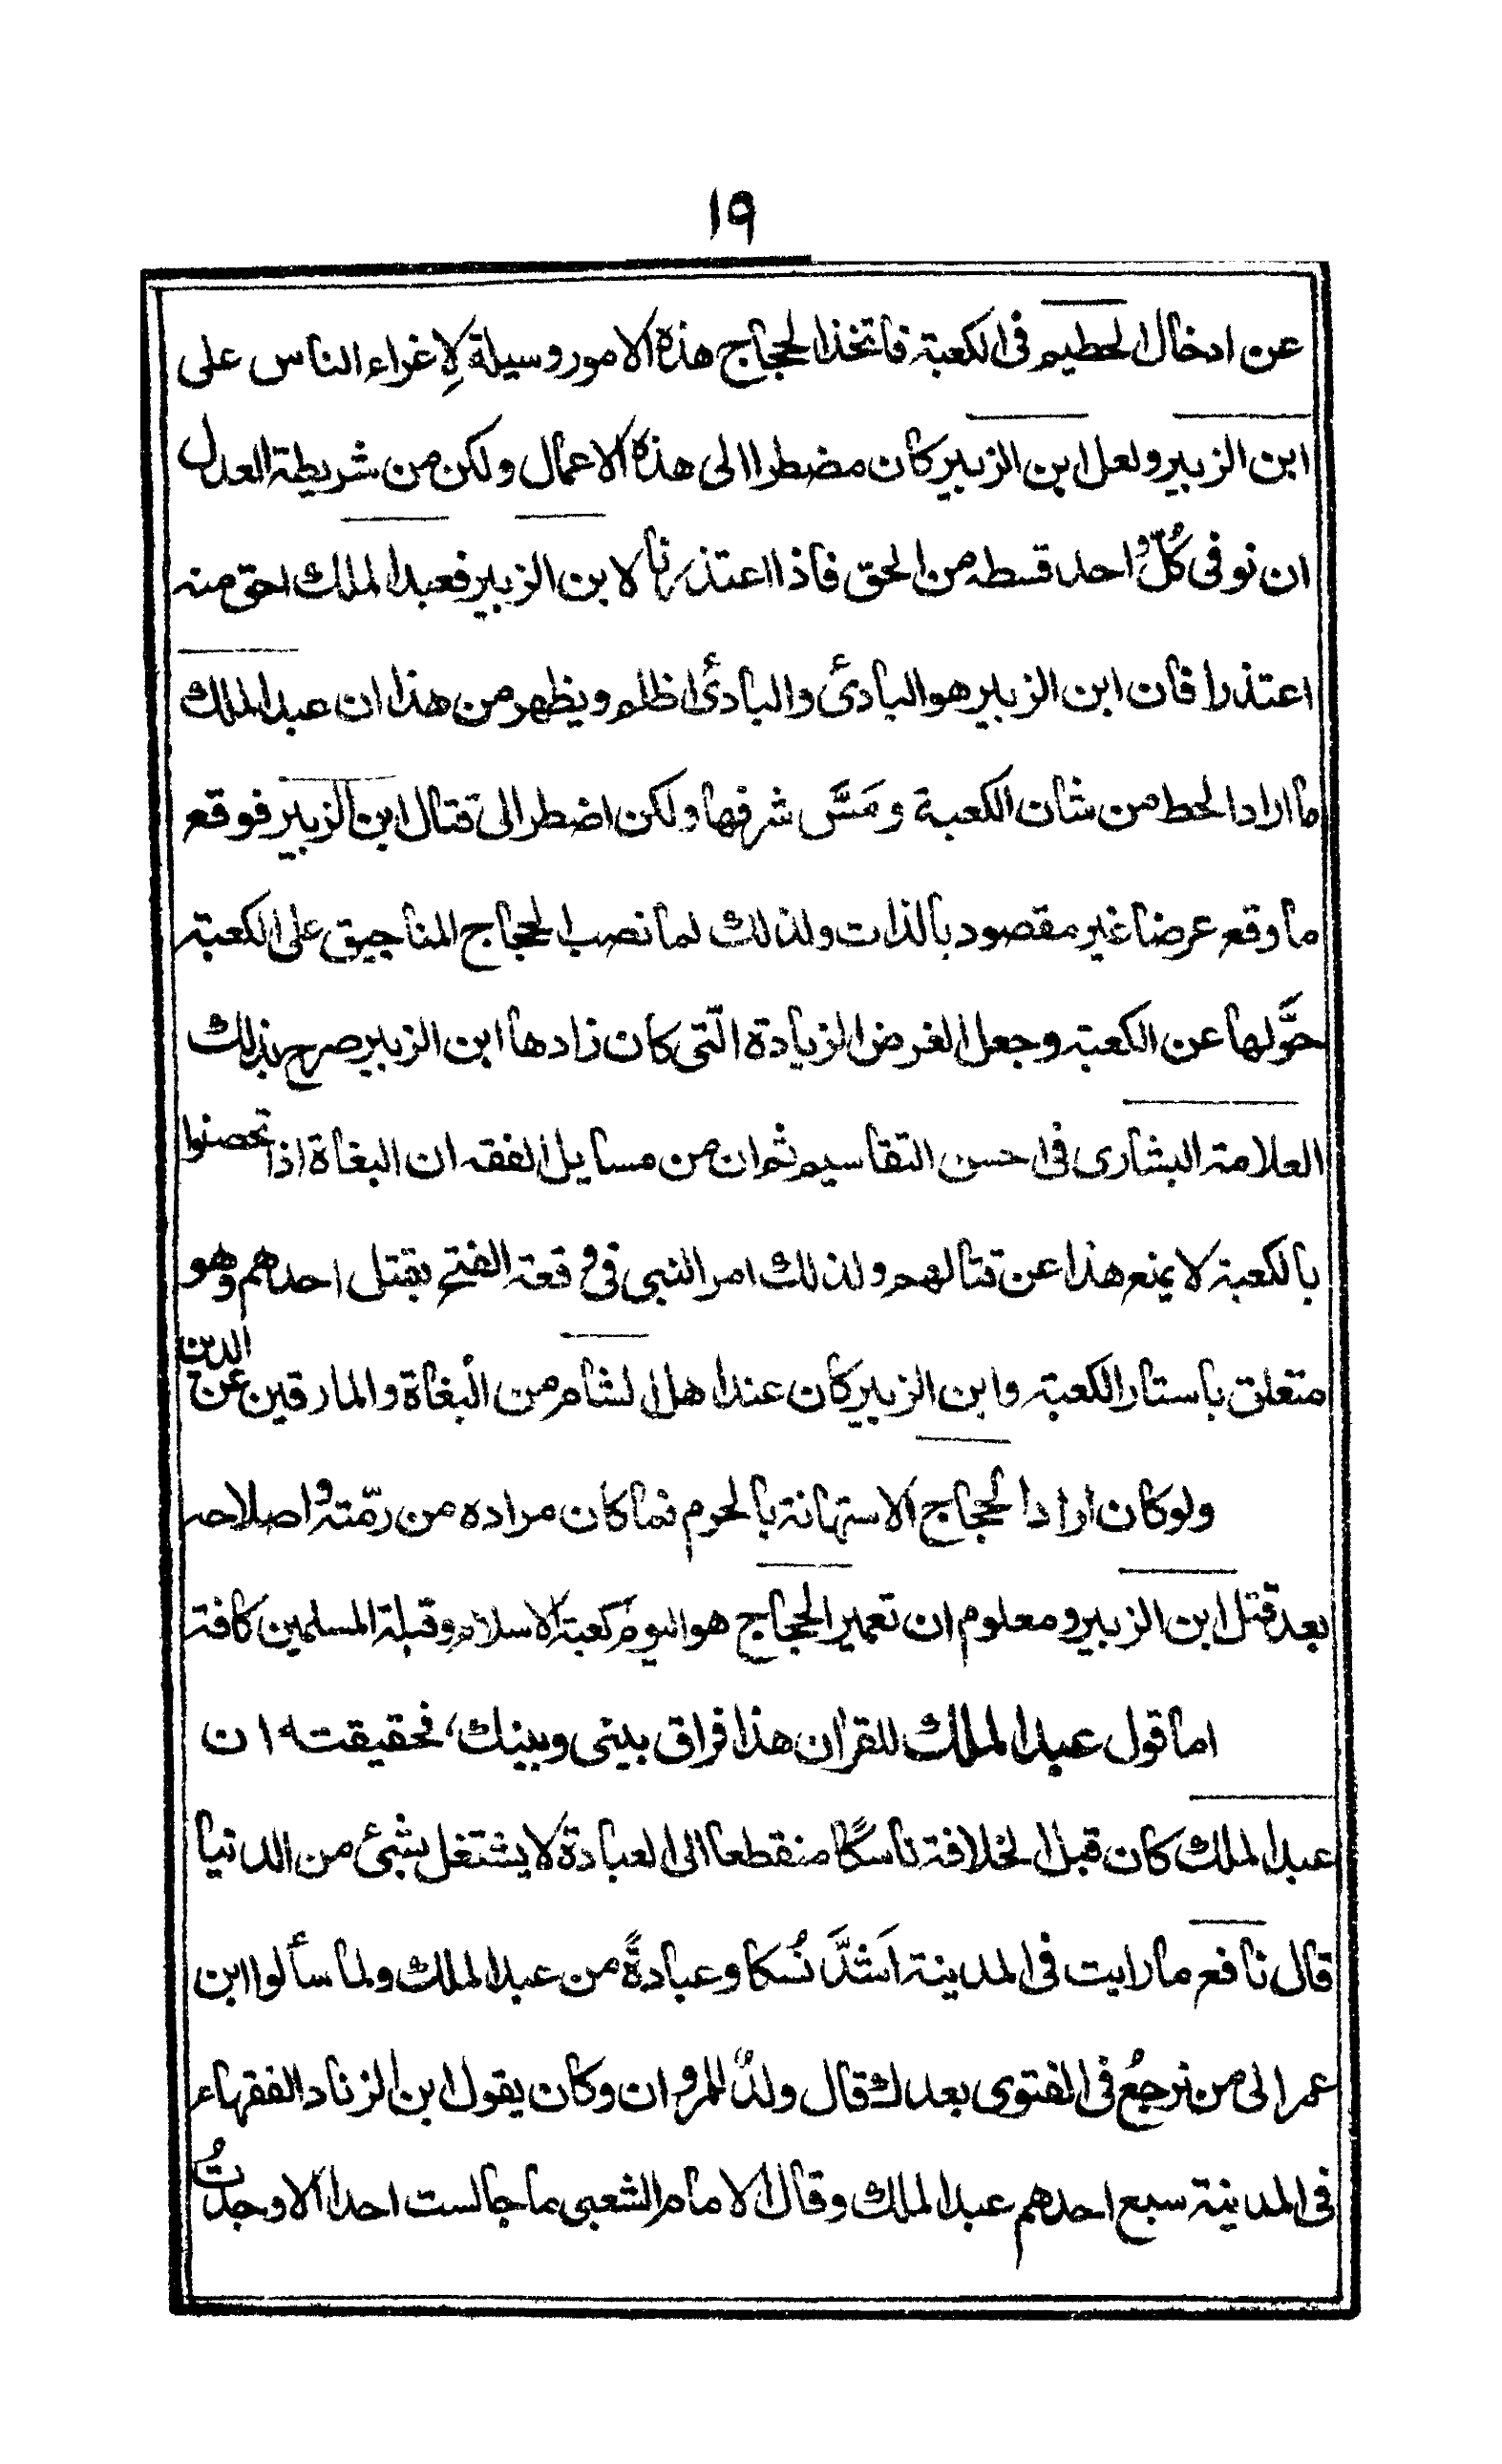 ١٩
عن ادخال الحطيم فى الكعبة فاتخذ الحجاج هذه الامور وسيلة لِاغراء الناس على
ابن الزبير ولعل ابن الزبير كان مضطرا الى هذه الاعمال ولكن من شريطة العدل
ان نوفى كُلَّ واحد قسطه من الحق فاذا اعتذرنا لابن الزبير فعبد الملك احق منه
اعتذرا فان ابن الزبير هو البادئ والبادئ اظلم ويظهر من هذا ان عبد الملك
ما اراد الحط من شان الكعبة ومَسَّ شرفها ولكن اضطر الى قتال ابن الزبير فوقع
ما وقع عرضا غير مقصود بالذات ولذلك لما نصب الحجاج المناجيق على الكعبة
حوَّلها عن الكعبة وجعل الغرض الزيادة الّتى كان زادها ابن الزبير صرح بذلك
العلامة البشارى فى احسن التقاسيم ثم ان من مسايل الفقه ان البغاة اذا تحصنوا
بالكعبة لا يمنع هذا عن قتالهم ولذلك امر النبى فى وقعة الفتح بقتل احدهم وهو
متعلق باستار الكعبة وابن الزبير كان عند اهل الشام من البغاة والمارقين عن الدين
ولو كان اراد الحجاج الاستهانة بالحرم فما كان مراده من رمّته واصلاحه
بعد قتل ابن الزبير ومعلوم ان تعمير الحجاج هو اليوم كعبة الاسلام وقبلة المسلمين كافة
اما قول عبد الملك للقران هذا فراق بينى وبينك، فحقيقته ان
عبد الملك كان قبل الخلافة ناسكًا منقطعا الى العبادة لا يشتغل بشئ من الدنيا
قال نافع ما رايت فى المدينة اَشَدَّ نُسكا وعبادةً من عبد الملك ولما سألوا ابن
عمر الى من نرجعُ فى الفتوى بعدك قال ولدٌ لمروان وكان يقول ابن الزناد الفقهاء
فى المدينة سبع احدهم عبد الملك وقال الامام الشعبى ما جالست احدا الا وجدتُ